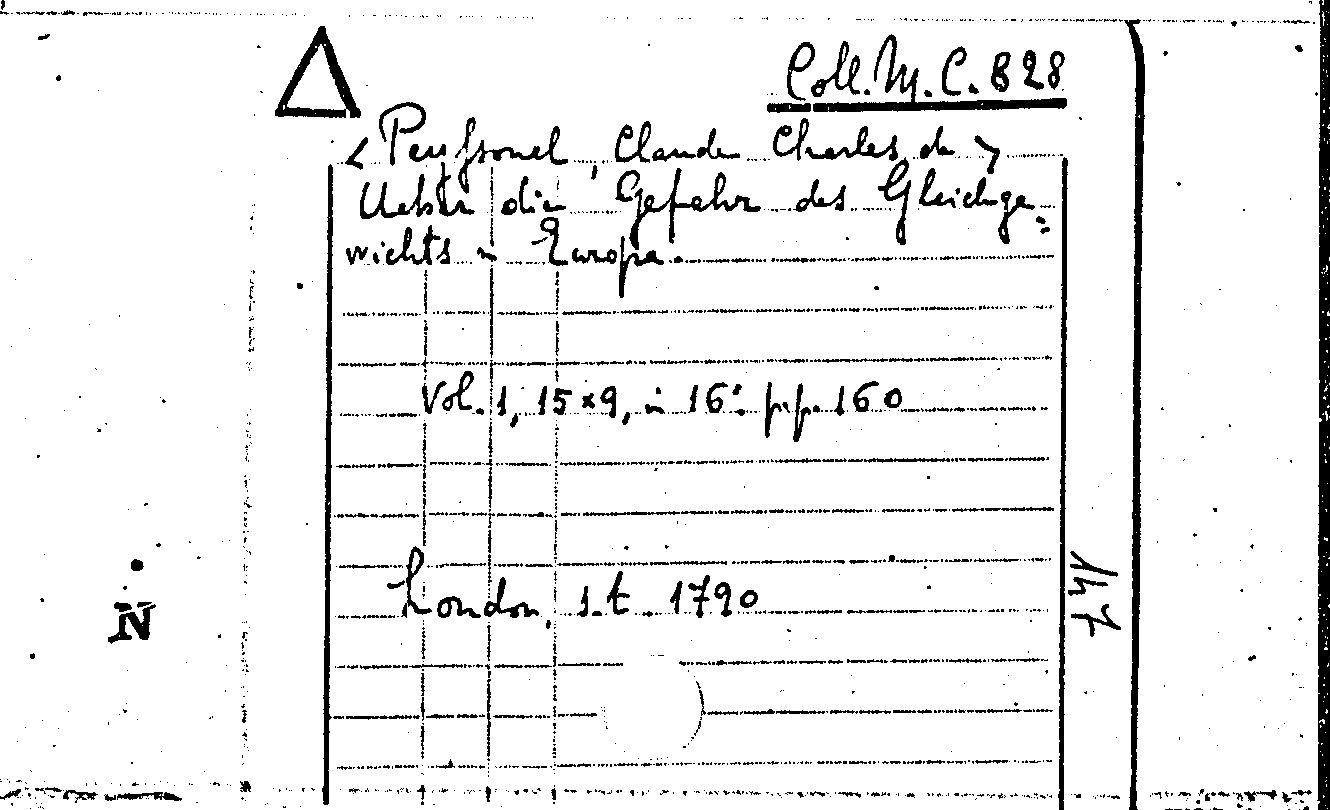 Coll. M. C. B 28
<Peyssonel, Claude Charles de>
Ueber die Gefahr des Gleichge=
wichts in Europa.
Vol. 1, 15×9, in 16°. pp. 160
London, s.t. 1790
147
N